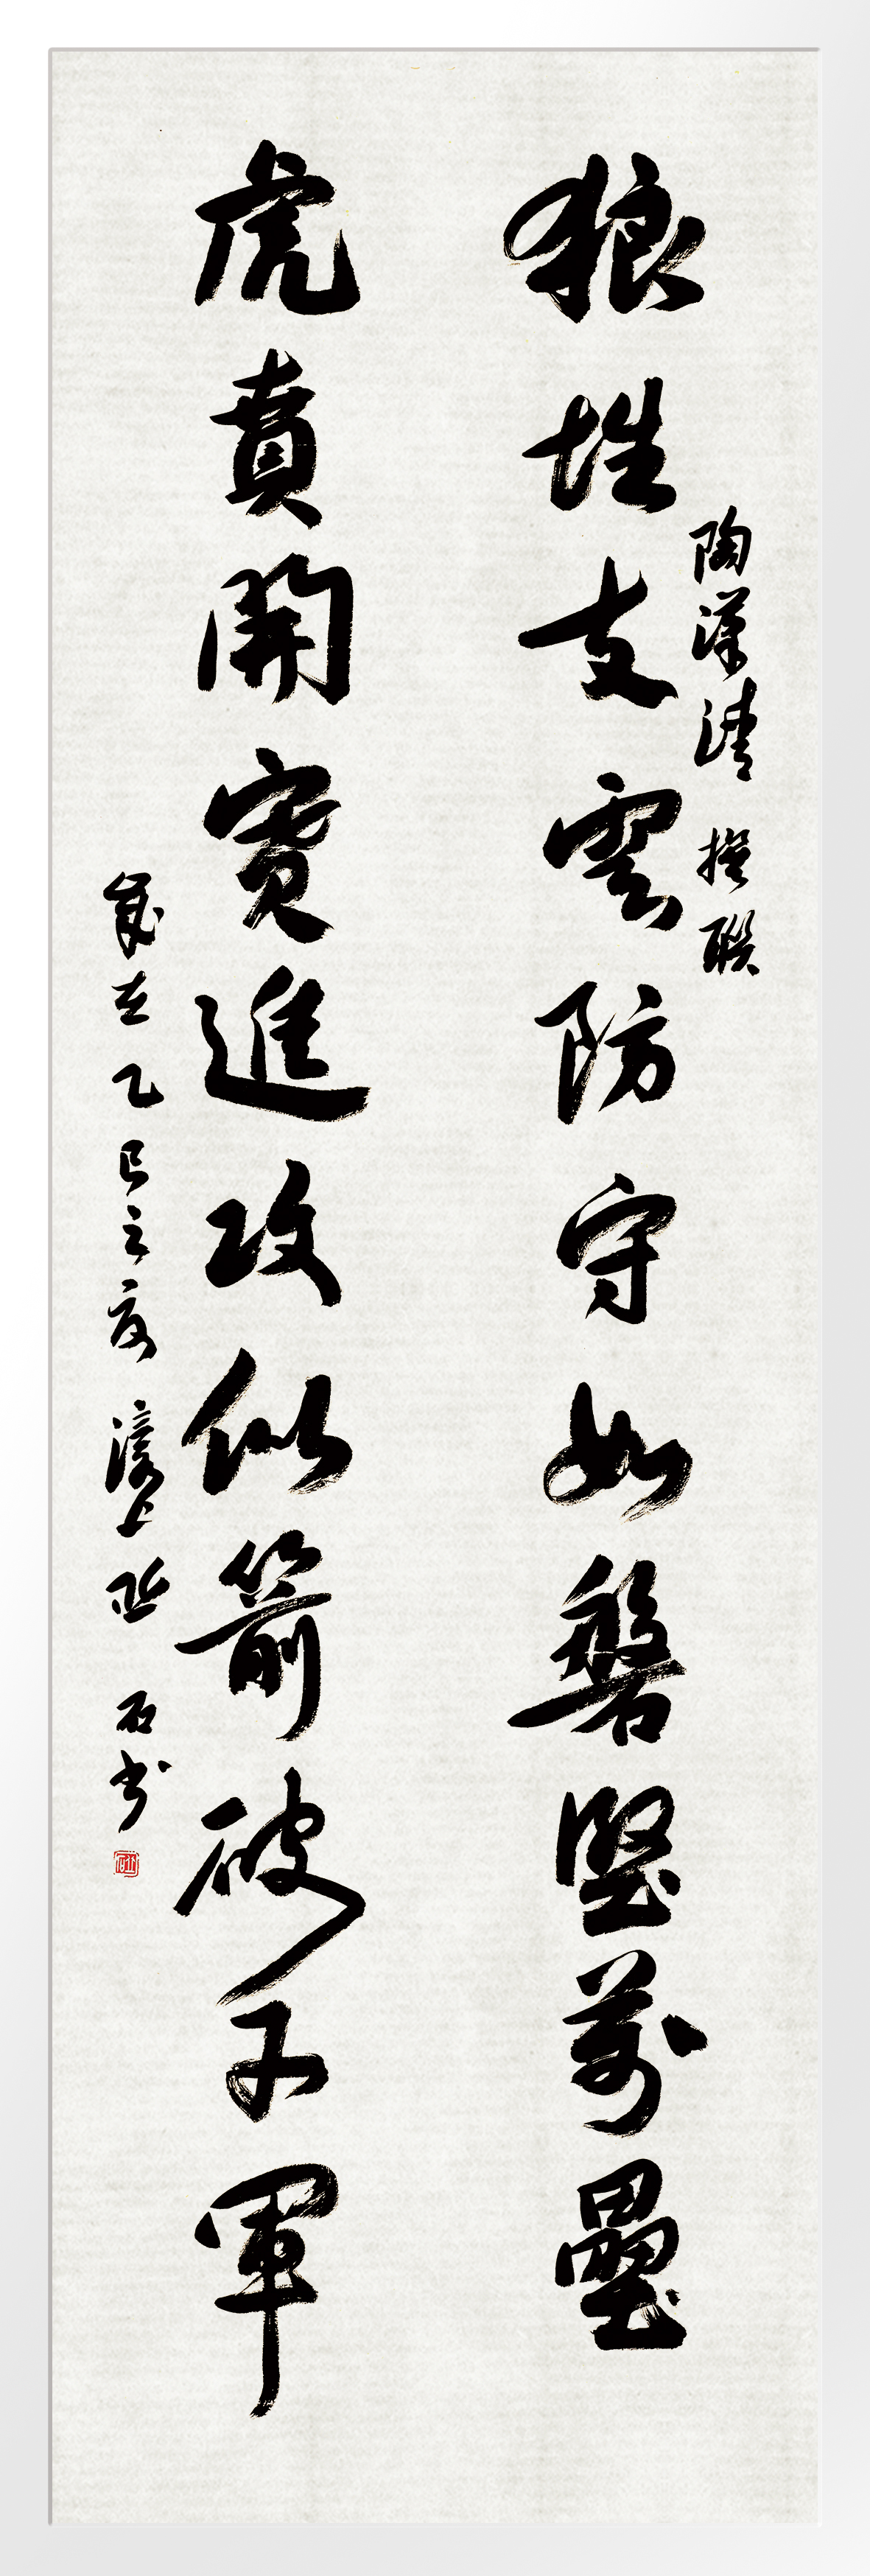 狼堠支雲防守如磐堅萬壘
陶漢清 撰聯
虎賁開寶進攻似箭破千軍
歲在乙巳之夏 濠上 石書